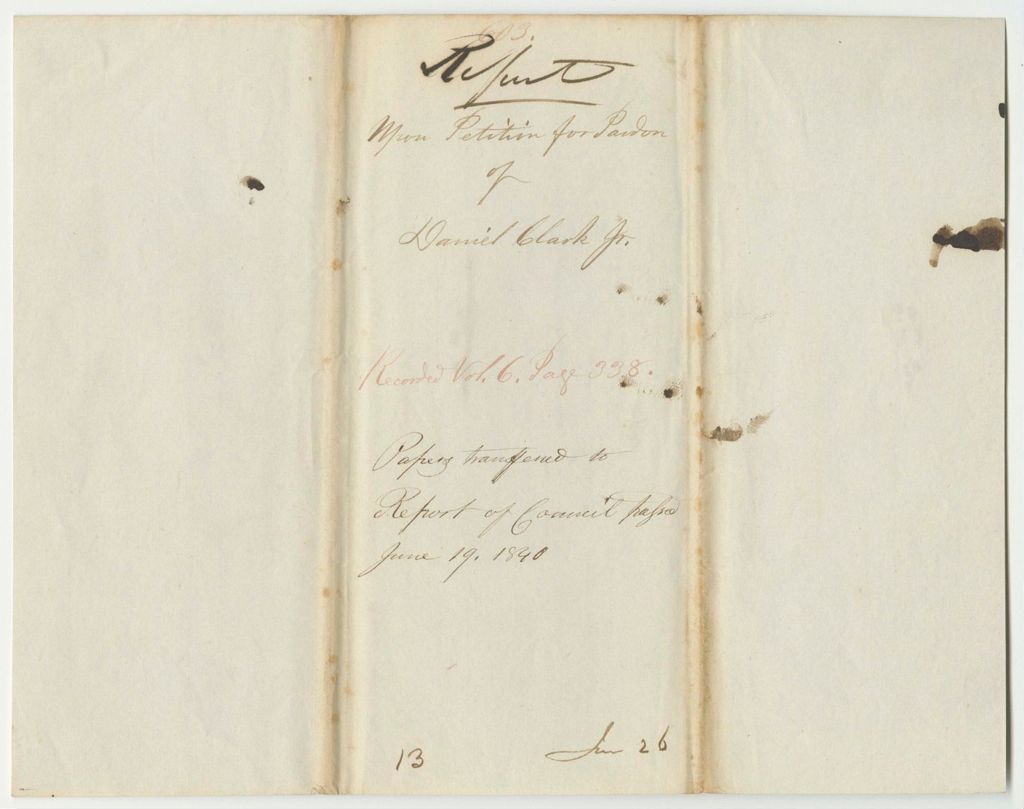 603.
Report
Upon Petition for Pardon
of
Daniel Clark Jr.
Recorded Vol. 6. Page 338.
Papers transferred to
Report of Council passed
June 19. 1840
13
26